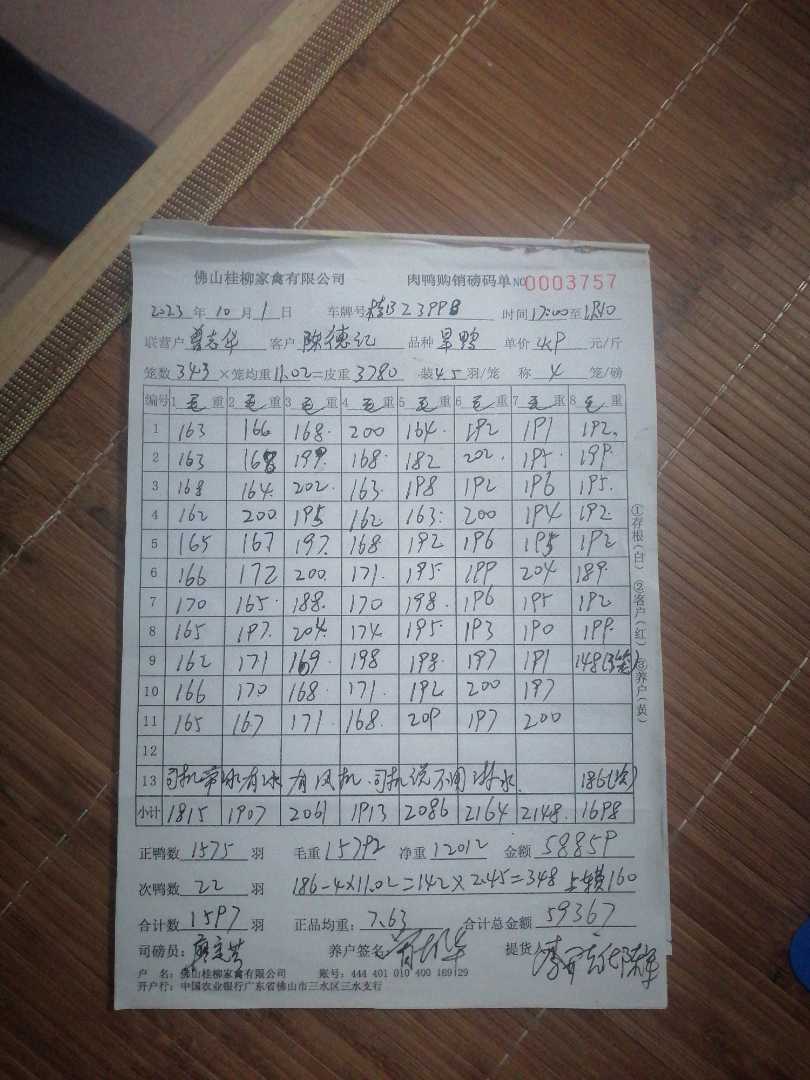 佛山桂柳家禽有限公司 肉鸭购销磅码单 NO 0003757
2023 年 10 月 1 日 车牌号 时间 17:00 至
联营户 曾志华 客户 陈德记 品种 旱鸭 单价 4.9 元/斤
笼数 343 ×笼均重 11.02 =皮重 3780 装 4.5 羽/笼 称 4 笼/磅
编号 1 毛 重 2 毛 重 3 毛 重 4 毛 重 5 毛 重 6 毛 重 7 毛 重 8 毛 重
1 163 166 168 200 164 192 191 192
2 163 168 199 168 182 202 195 199
3 168 164 202 163 198 192 196 195
4 162 200 195 162 163 200 194 192
5 165 167 197 168 192 196 195 192
6 166 172 200 171 195 199 204 189
7 170 165 188 170 198 196 195 192
8 165 197 204 174 195 193 190 199
9 162 171 169 198 198 197 191 148(3笼)
10 166 170 168 171 192 200 197
11 165 167 171 168 209 197 200
12
13 司机带冰有冰 有风机 司机说不用淋水 186(次)
小计 1815 1907 2061 1913 2086 2164 2148 1698
正鸭数 1575 羽 毛重 15792 净重 12012 金额 58859
次鸭数 22 羽 186-4×11.02=142×2.45=348 上车费160
合计数 1597 羽 正品均重: 7.63 合计总金额 59367
司磅员: 养户签名: 提货人
户 名: 佛山桂柳家禽有限公司 账号: 444 401 010 400 169 29
开户行: 中国农业银行广东省佛山市三水区三水支行
①存根(白) ②客户(红) ③养户(黄)